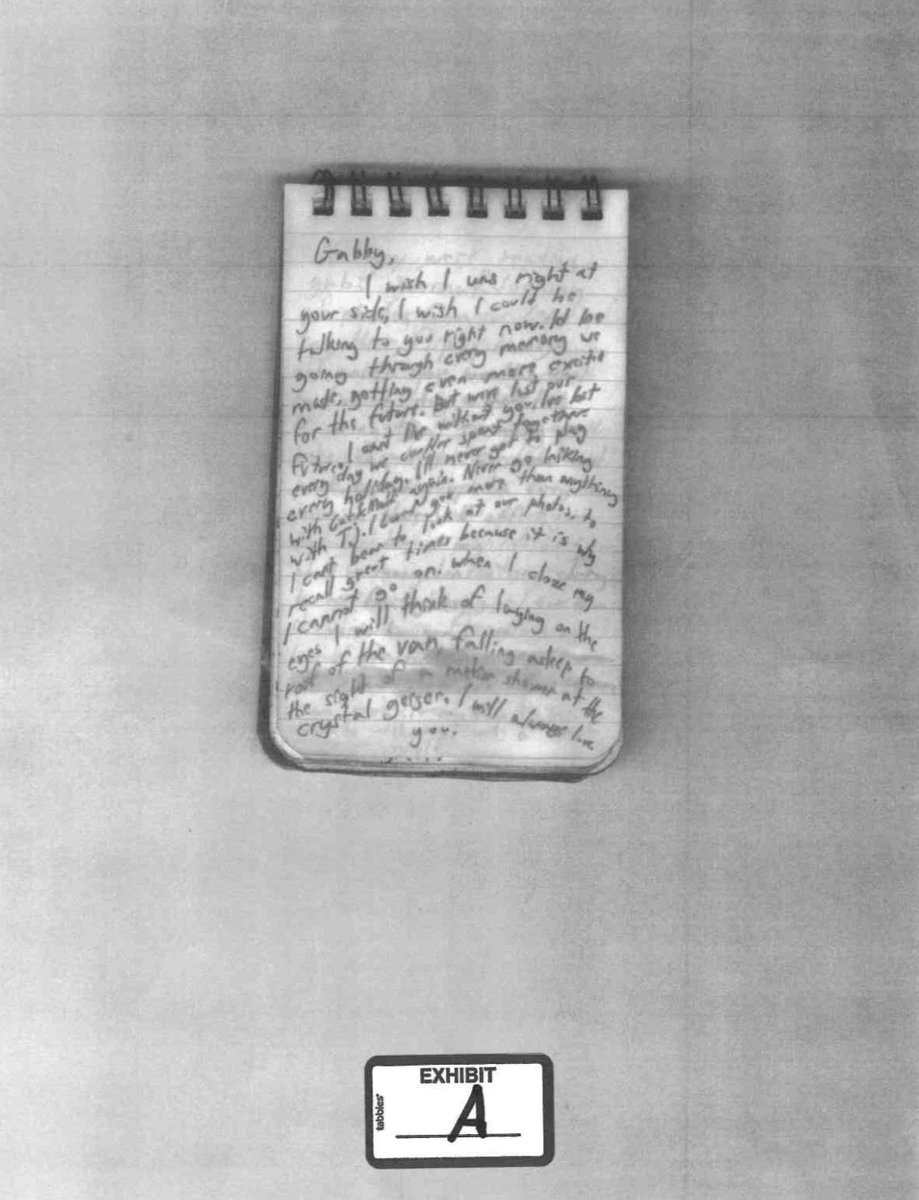 Gabby,
I wish I was right at
your side, I wish I could be
talking to you right now. Id be
going through every memory we
made, getting even more excited
for the future. But were lost our
future. I cant live without you. Ive lost
every day we could've spent together
every holiday. I'll never get to play
with again. Never go hiking
with TJ. I loved you more than anything
I cant bear to look at our photos, to
recall great times because it is why
I cannot go on. when I close my
eyes I will think of laying on the
roof of the van, falling asleep to
the sight of a meteor shower at the
crystal geyser. I will always love
you.
EXHIBIT
A
tabbies